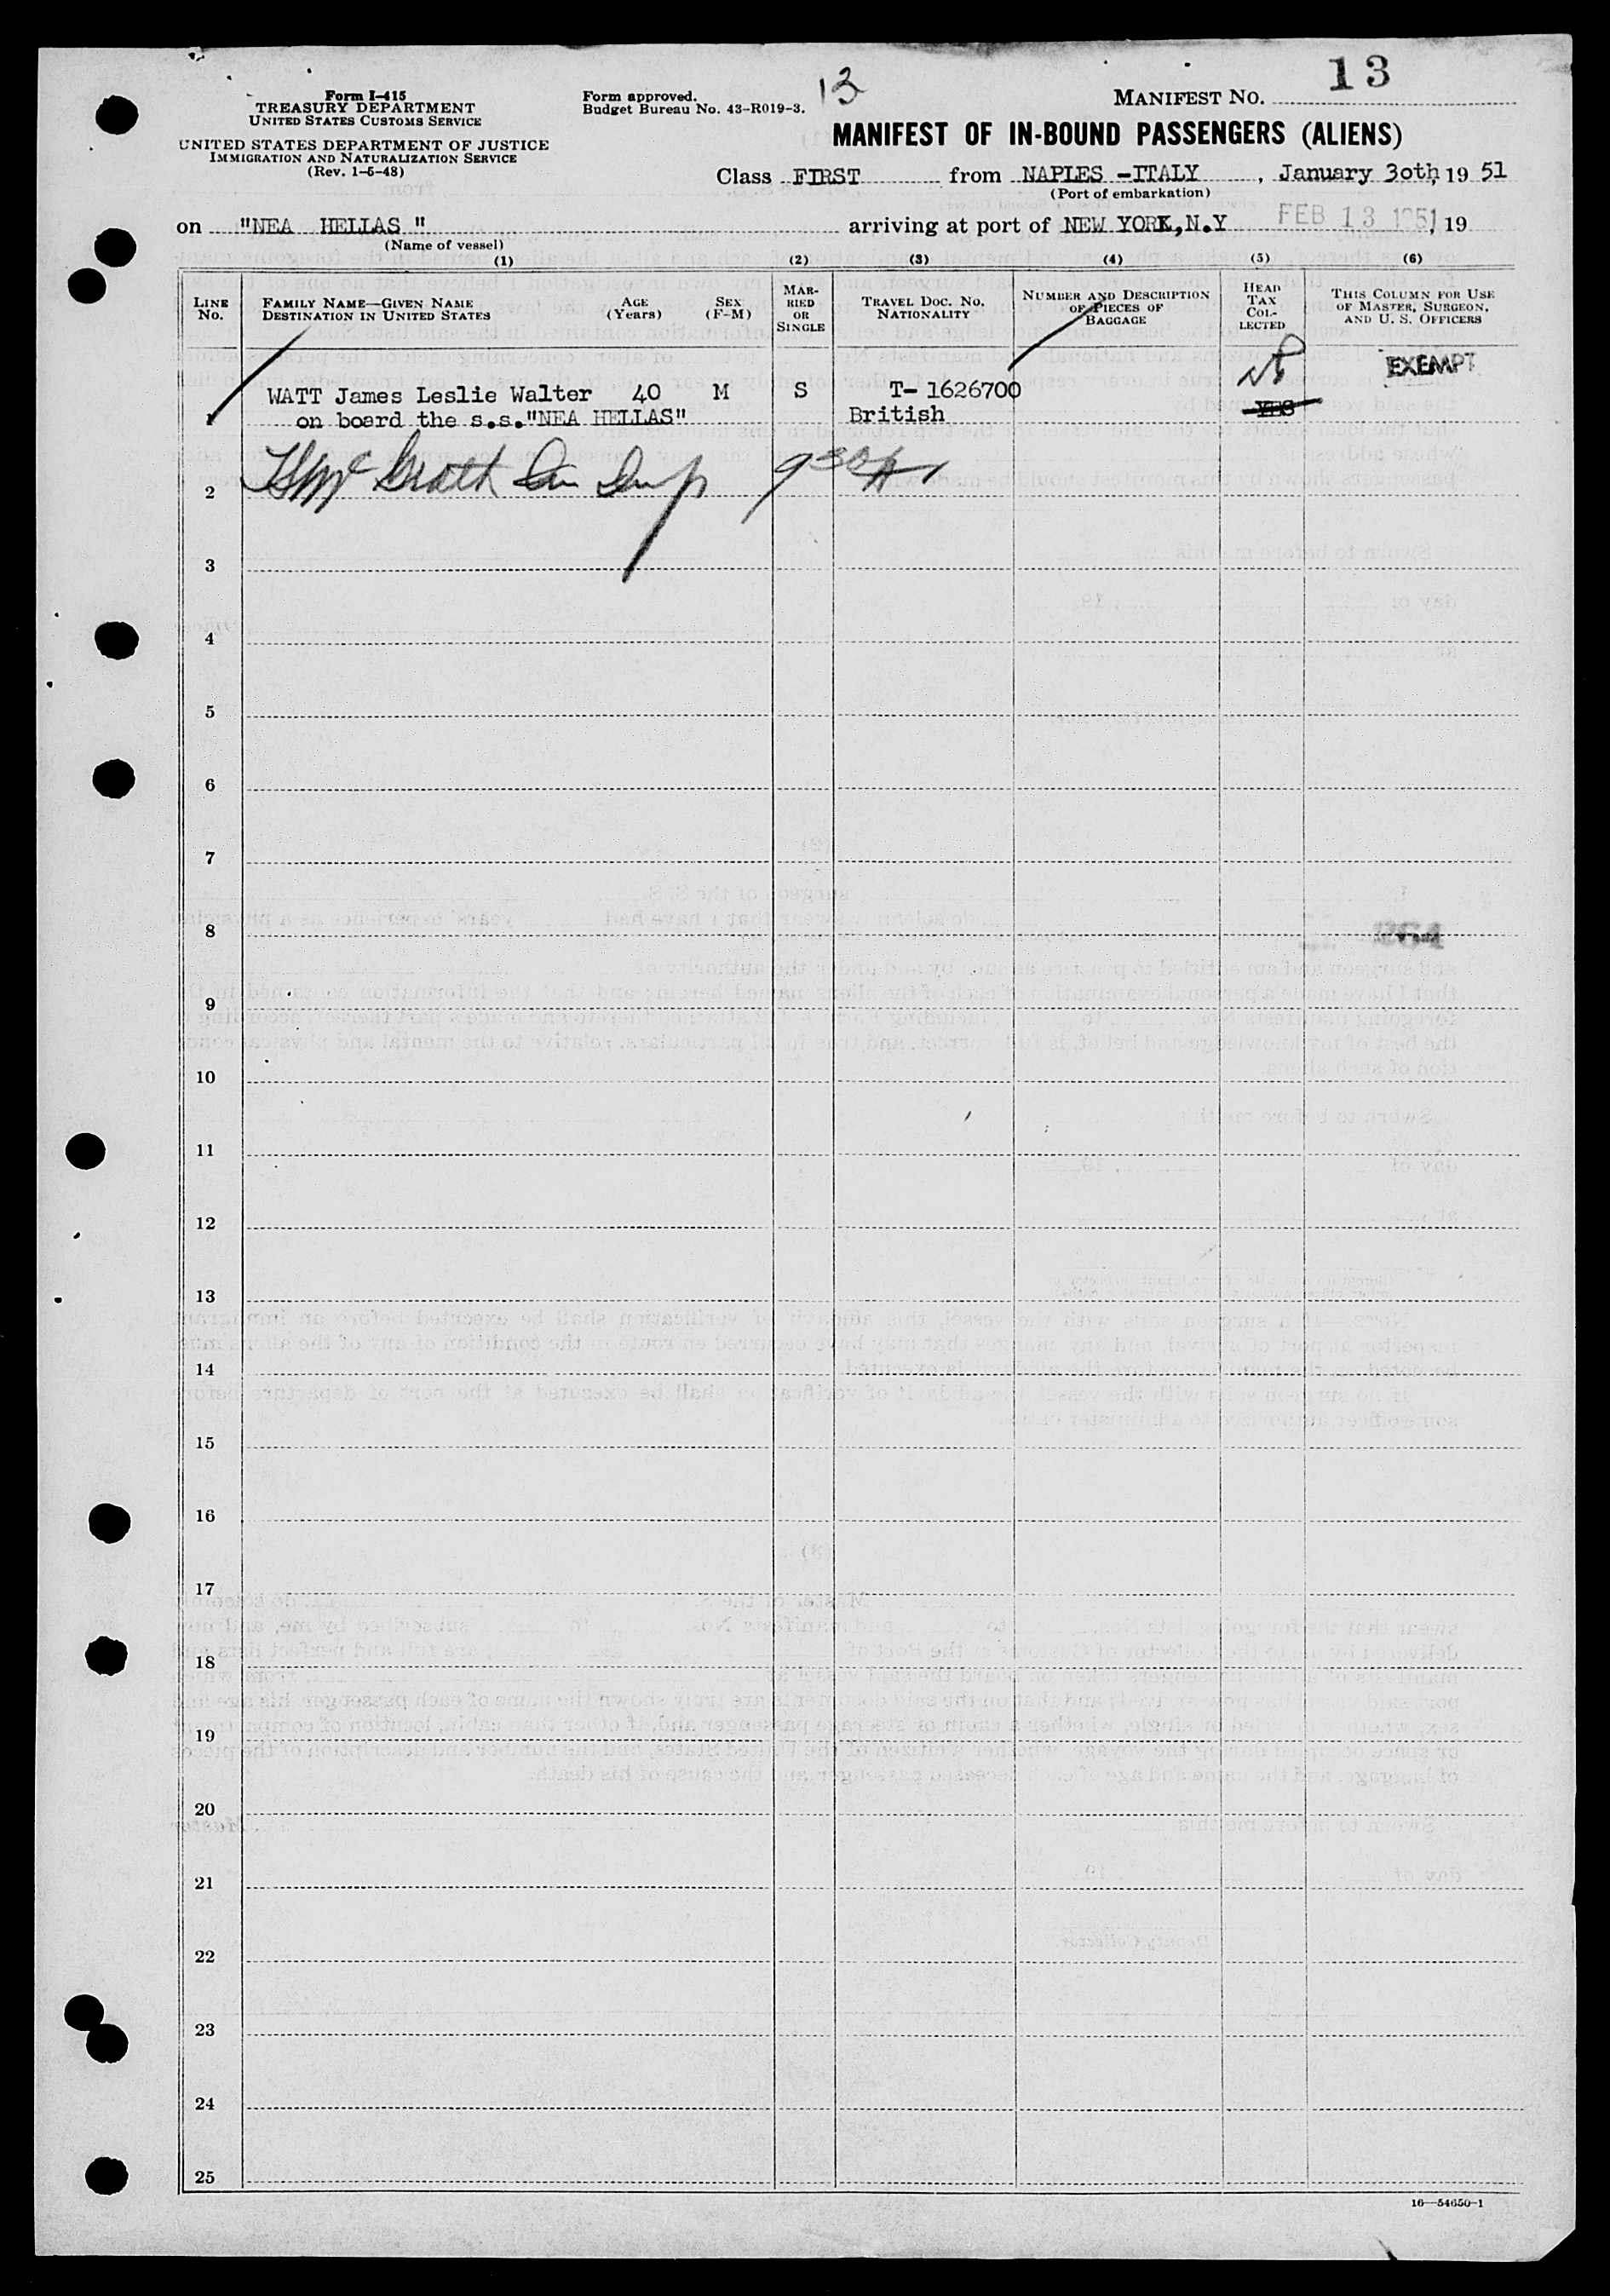 13
13
Form I-415
TREASURY DEPARTMENT
UNITED STATES CUSTOMS SERVICE
UNITED STATES DEPARTMENT OF JUSTICE
IMMIGRATION AND NATURALIZATION SERVICE
(Rev. 1-5-48)
Form approved.
Budget Bureau No. 43-R019-3.
MANIFEST NO.
MANIFEST OF IN-BOUND PASSENGERS (ALIENS)
Class FIRST from NAPLES -ITALY , January 30th, 19 51
(Port of embarkation)
on "NEA HELLAS " arriving at port of NEW YORK,N.Y FEB 13 1951, 19
(Name of vessel)
(1) (2) (3) (4) (5) (6)
LINE No.
FAMILY NAME—GIVEN NAME
DESTINATION IN UNITED STATES
AGE (Years)
SEX (F-M)
MARRIED OR SINGLE
TRAVEL DOC. NO. NATIONALITY
NUMBER AND DESCRIPTION OF PIECES OF BAGGAGE
HEAD TAX COLLECTED
THIS COLUMN FOR USE OF MASTER, SURGEON, AND U. S. OFFICERS
EXEMPT
WATT James Leslie Walter 40 M S T- 1626700
1 on board the s.s."NEA HELLAS" British YES
2
3
4
5
6
7
8
9
10
11
12
13
14
15
16
17
18
19
20
21
22
23
24
25
16—54650-1